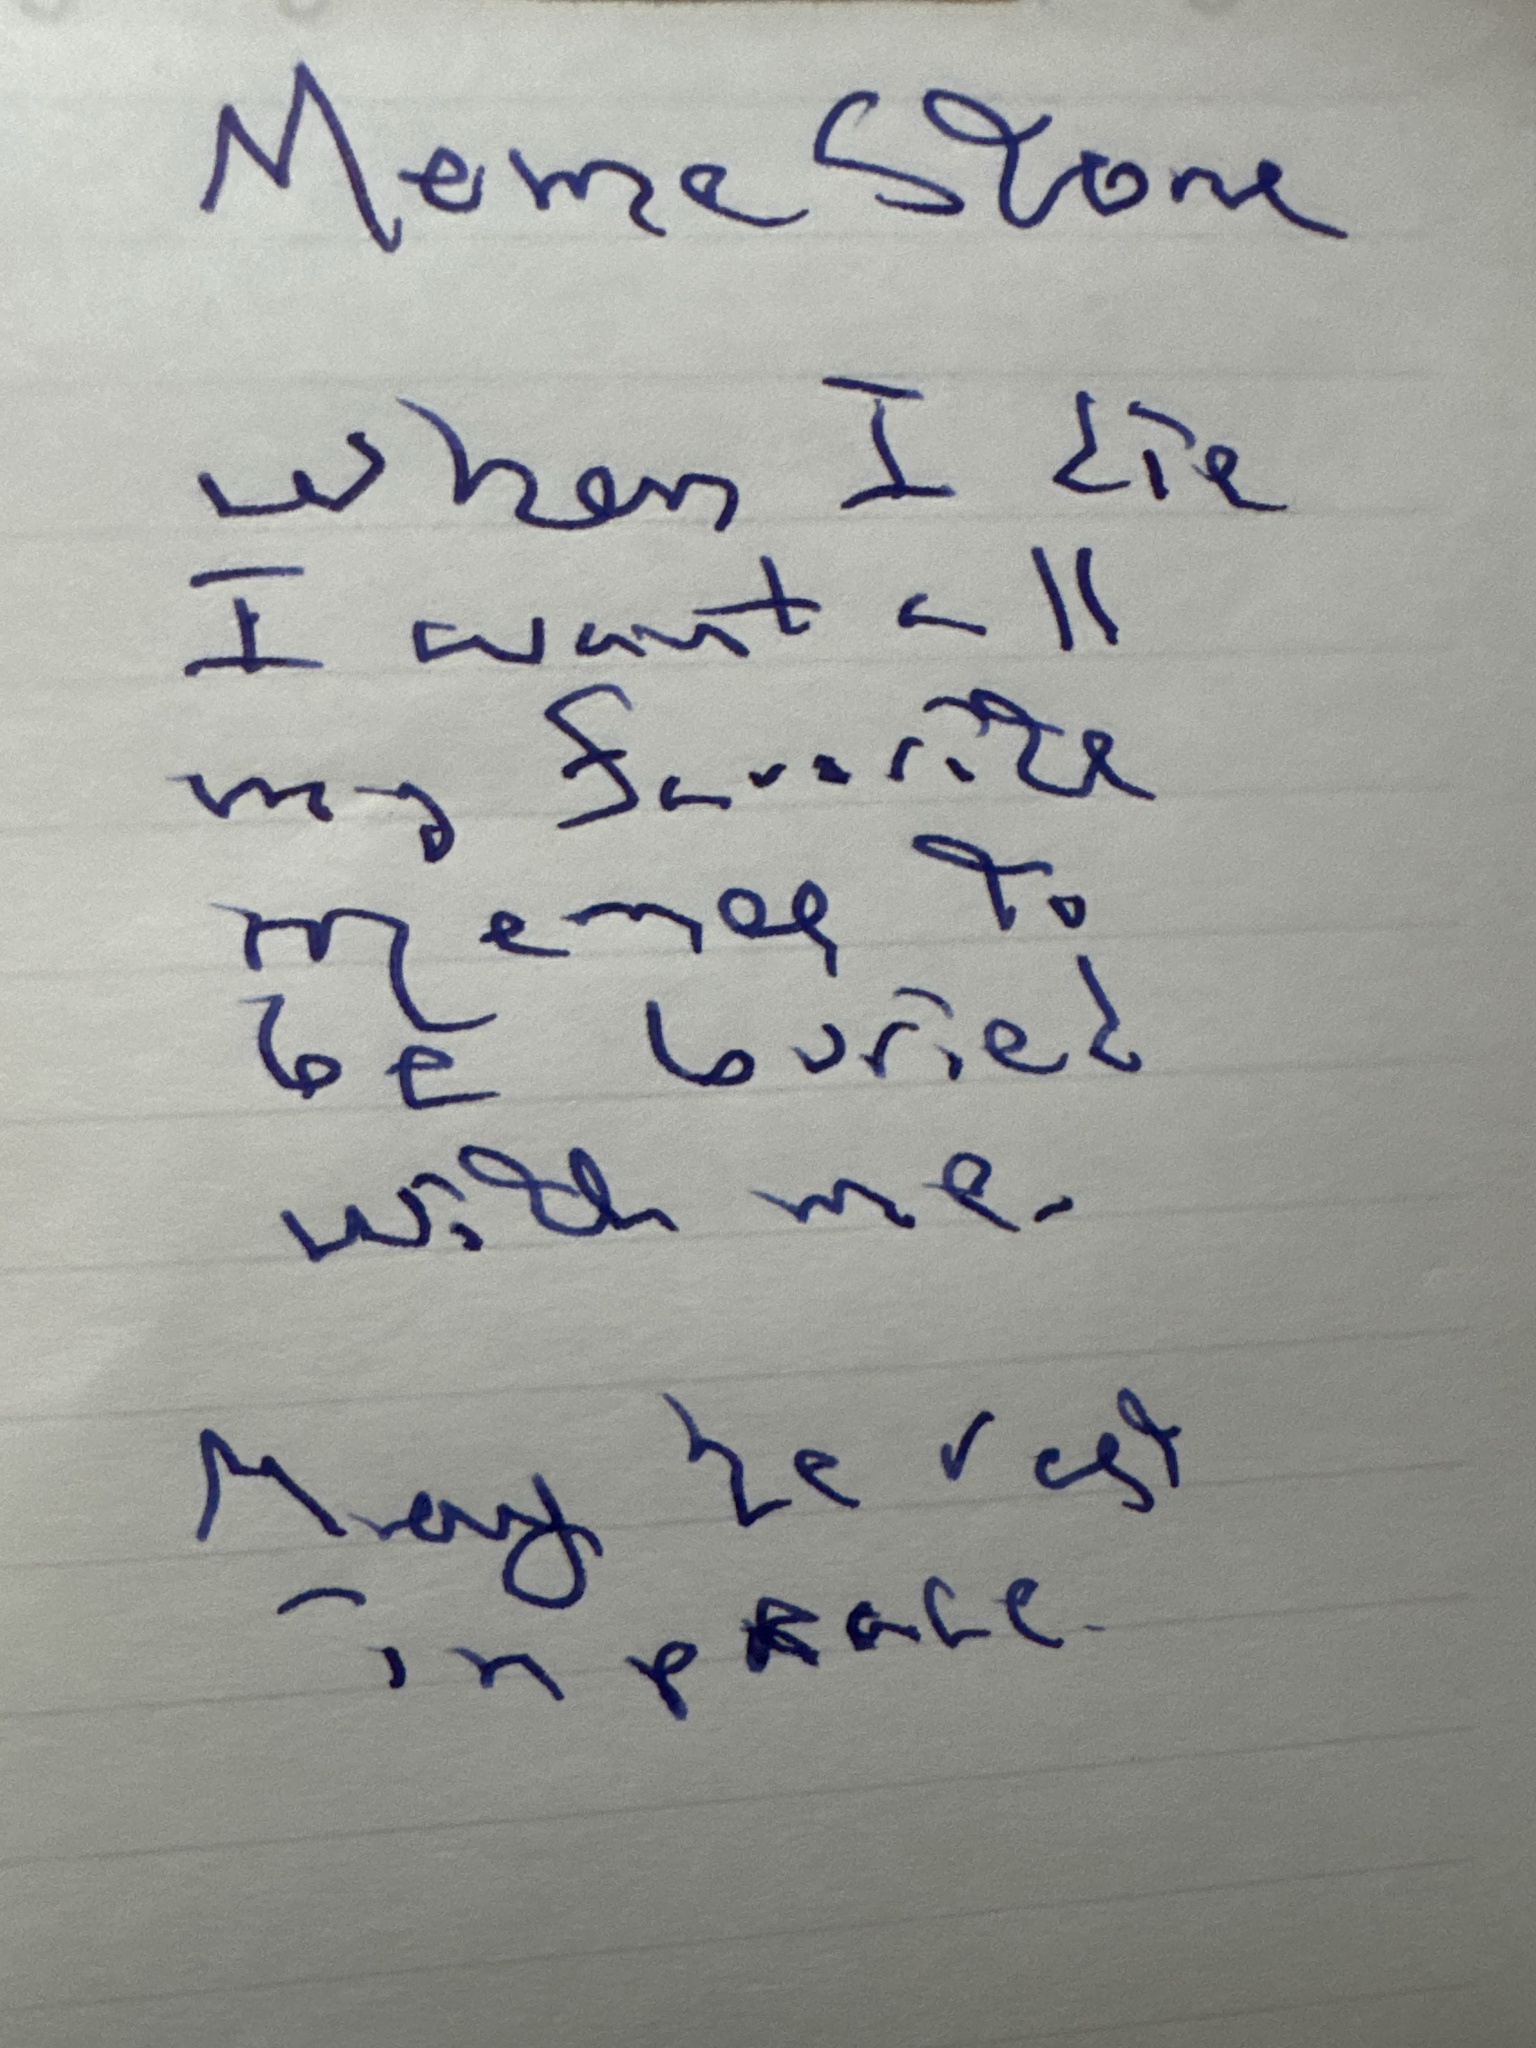 Meme Stone
When I die
I want all
my favorite
memes to
be buried
with me.
May he rest
in peace.